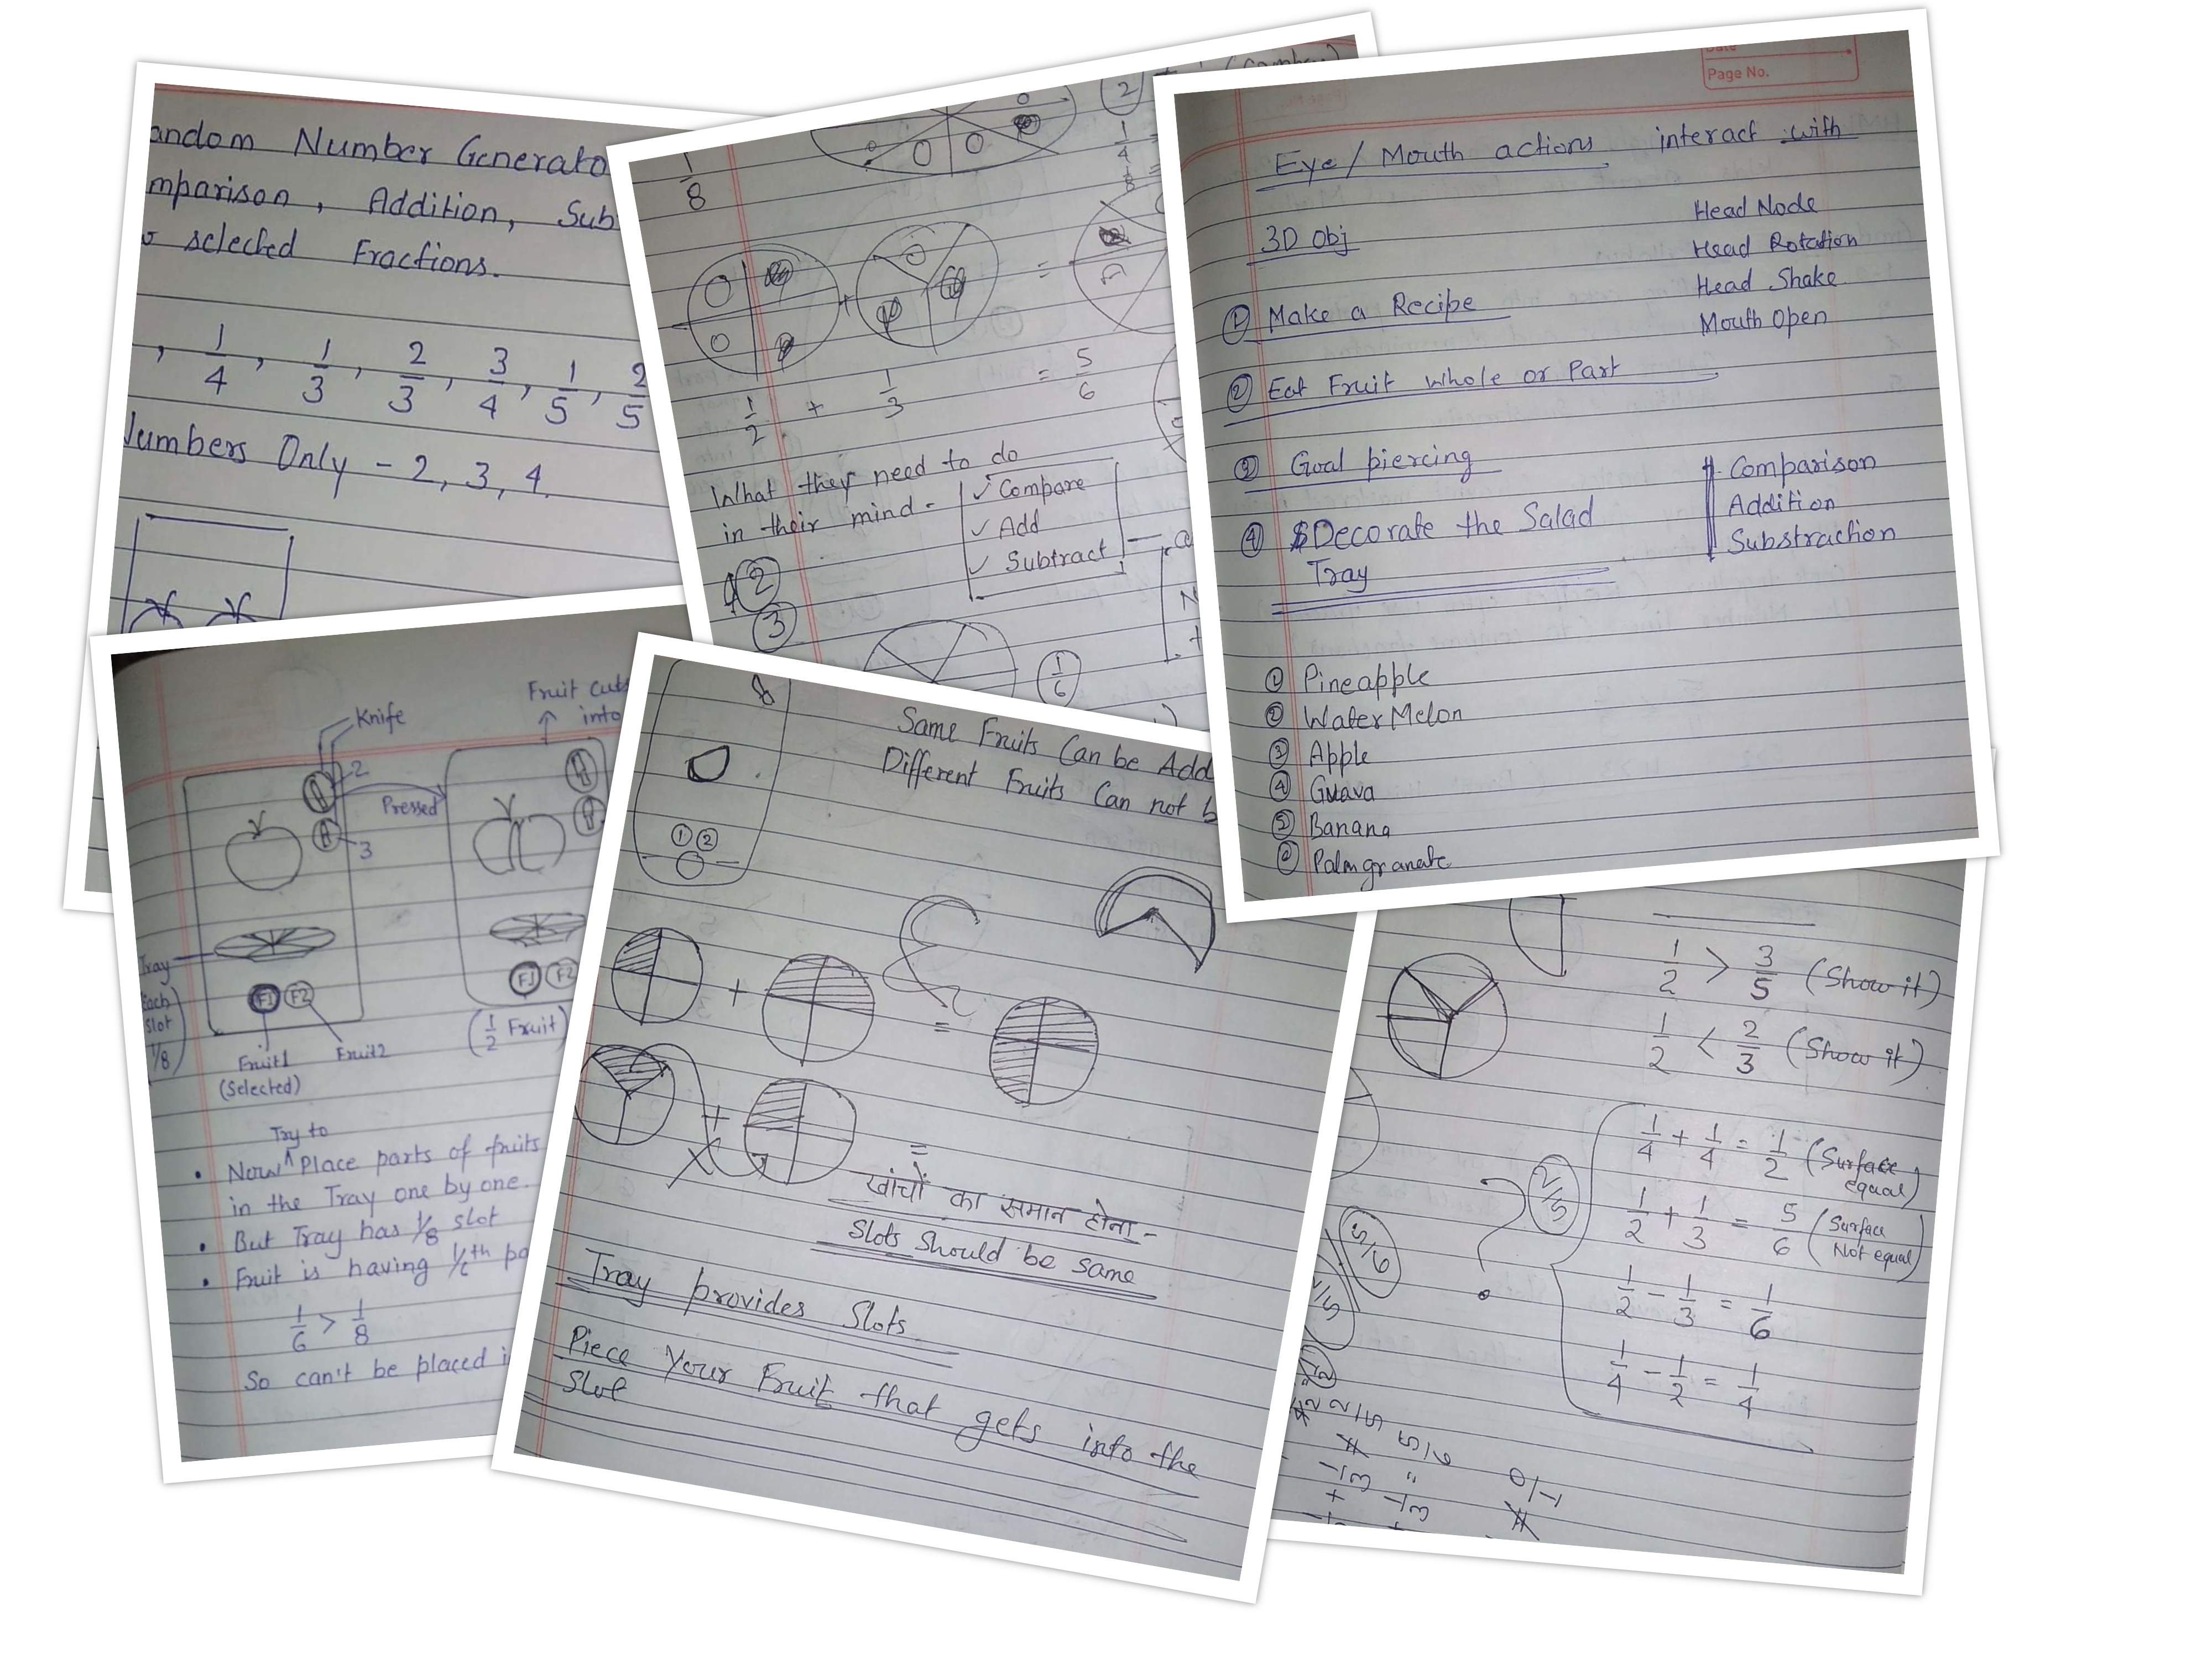 andom Number Generato
mparison, Addition, Sub
selected Fractions.
, 1/4, 1/3, 2/3, 3/4, 1/5, 2/5
Numbers Only - 2, 3, 4.
1/8
2
1/4
1/8
1/2 + 1/3 = 5/6
What they need to do
in their mind -
✓ Compare
✓ Add
✓ Subtract
2
3
1/6
Page No.
Eye / Mouth actions interact with
3D Obj
Head Node
Head Rotation
Head Shake
Mouth Open
① Make a Recipe
② Eat Fruit whole or Part
③ Goal piercing
④ Decorate the Salad
Tray
Comparison
Addition
Substraction
① Pineapple
② Water Melon
③ Apple
④ Guava
⑤ Banana
⑥ Palmgranate
Fruit Cuts
into
Knife
2
Pressed
3
Tray
Each
slot
1/8
F1 F2
F1 F2
Fruit1
(Selected)
Fruit2
(1/2 Fruit)
Try to
• Now ^ Place parts of fruits
in the Tray one by one.
• But Tray has 1/8 slot
• Fruit is having 1/6th pa
1/6 > 1/8
So can't be placed i
8
Same Fruits Can be Add
Different Fruits Can not b
① ②
+ =
+ =
खांचों का समान होना -
Slots Should be same
Tray provides Slots
Piece Your Fruit that gets into the
Slot
1/2 > 3/5 (Show it)
1/2 < 2/3 (Show it)
1/4 + 1/4 = 1/2 (Surface equal)
1/2 + 1/3 = 5/6 (Surface Not equal)
1/2 - 1/3 = 1/6
1/4 - 1/2 = 1/4
2/5
5/6